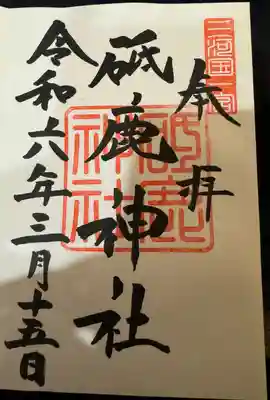 三河国一宮
奉拝
砥鹿神社
砥鹿神社
令和六年三月十五日